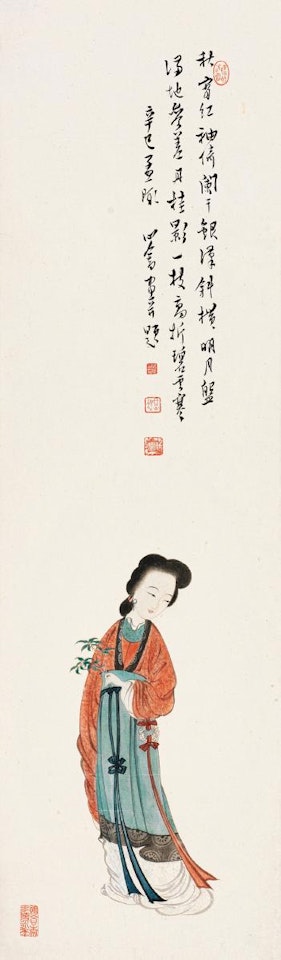 秋宵紅袖倚闌干銀漢斜橫明月盤
滿地參差丹桂影一枝高折碧雲寒
辛巳孟陬 心畬畫并題